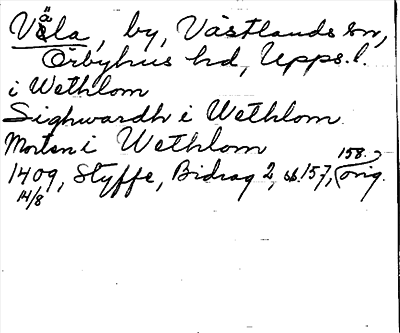 Väla, by, Västlands sn,
Örbyhus hd, Upps. l.
i Wethlom
Sighwardh i Wethlom
Morten i Wethlom
1409, Styffe, Bidrag 2, s. 157, 158. (orig.
14/8